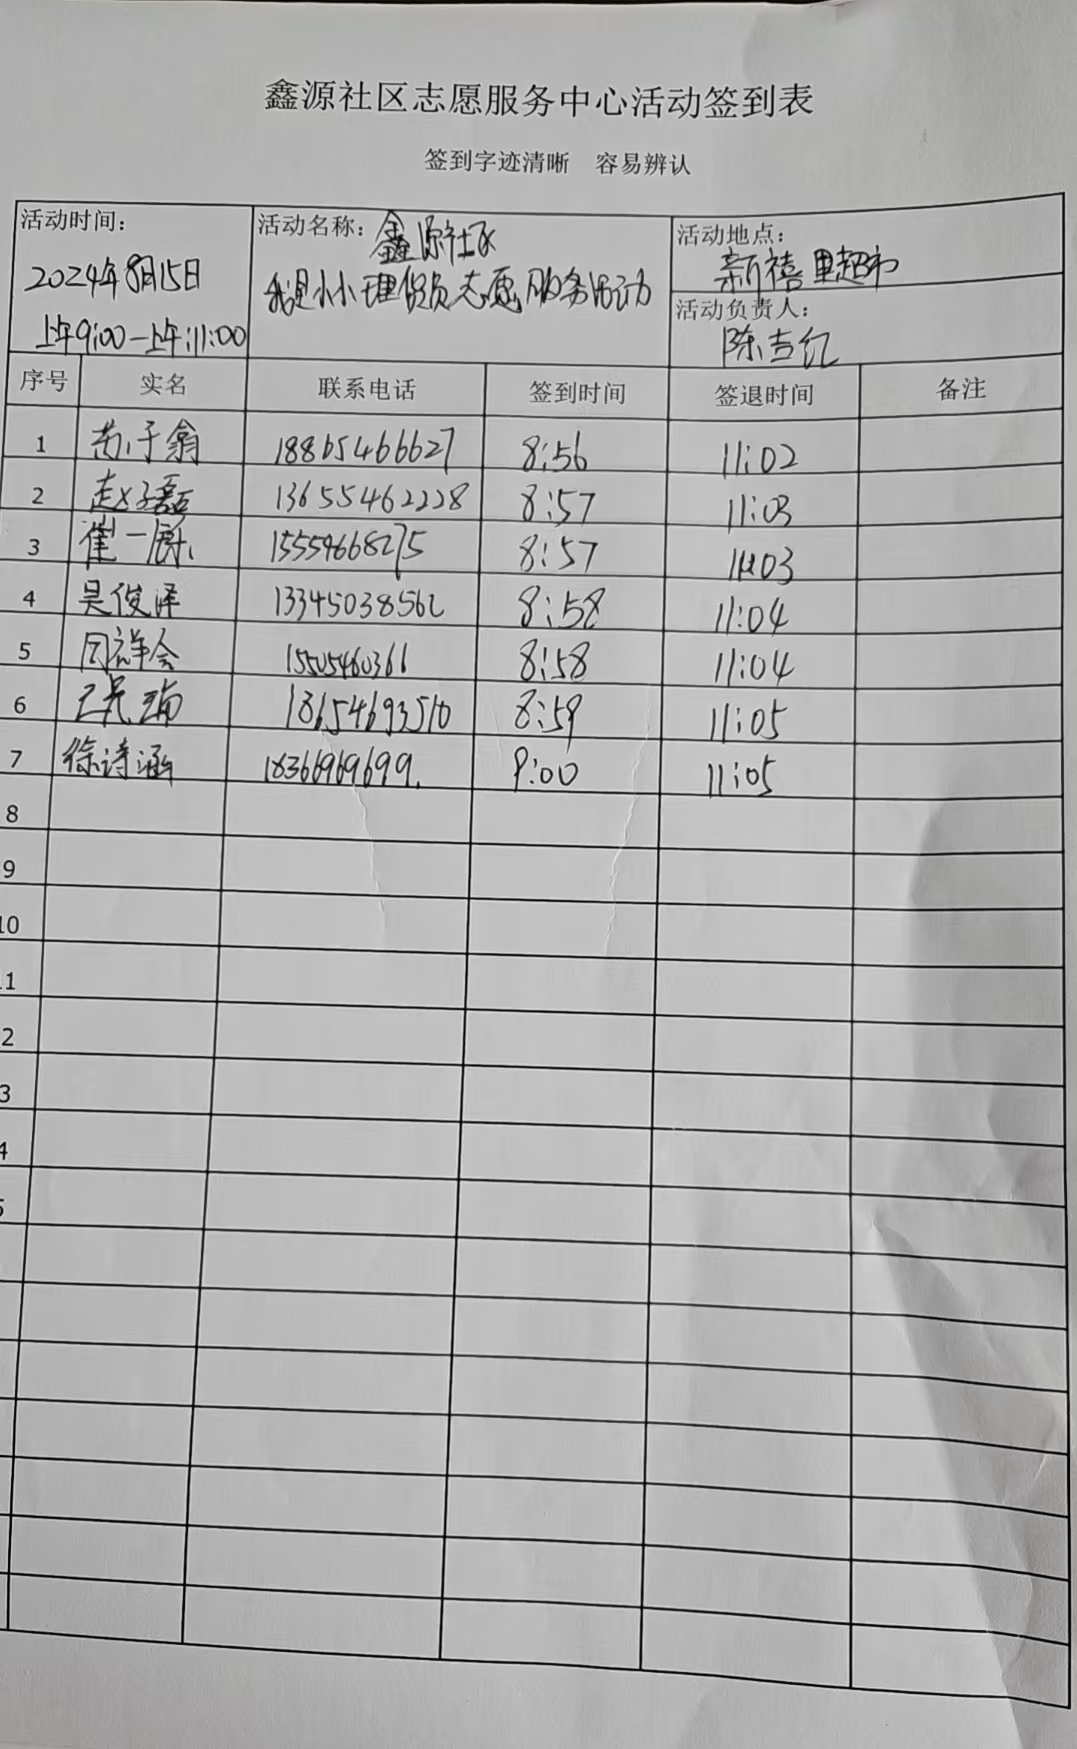 鑫源社区志愿服务中心活动签到表
签到字迹清晰 容易辨认
活动时间：
2024年8月15日
上午9:00-上午:11:00
活动名称：鑫源社区
我是小小理货员志愿服务活动
活动地点：
新禧里超市
活动负责人：
陈吉红
序号 实名 联系电话 签到时间 签退时间 备注
1 18865466627 8:56 11:02
2 赵子磊 13655462228 8:57 11:03
3 崔一 15559668275 8:57 11:03
4 吴俊泽 13345038562 8:58 11:04
5 周祥会 15505460366 8:58 11:04
6 18654693510 8:59 11:05
7 徐诗涵 18366969699. 9:00 11:05
8
9
10
1
2
3
4
5